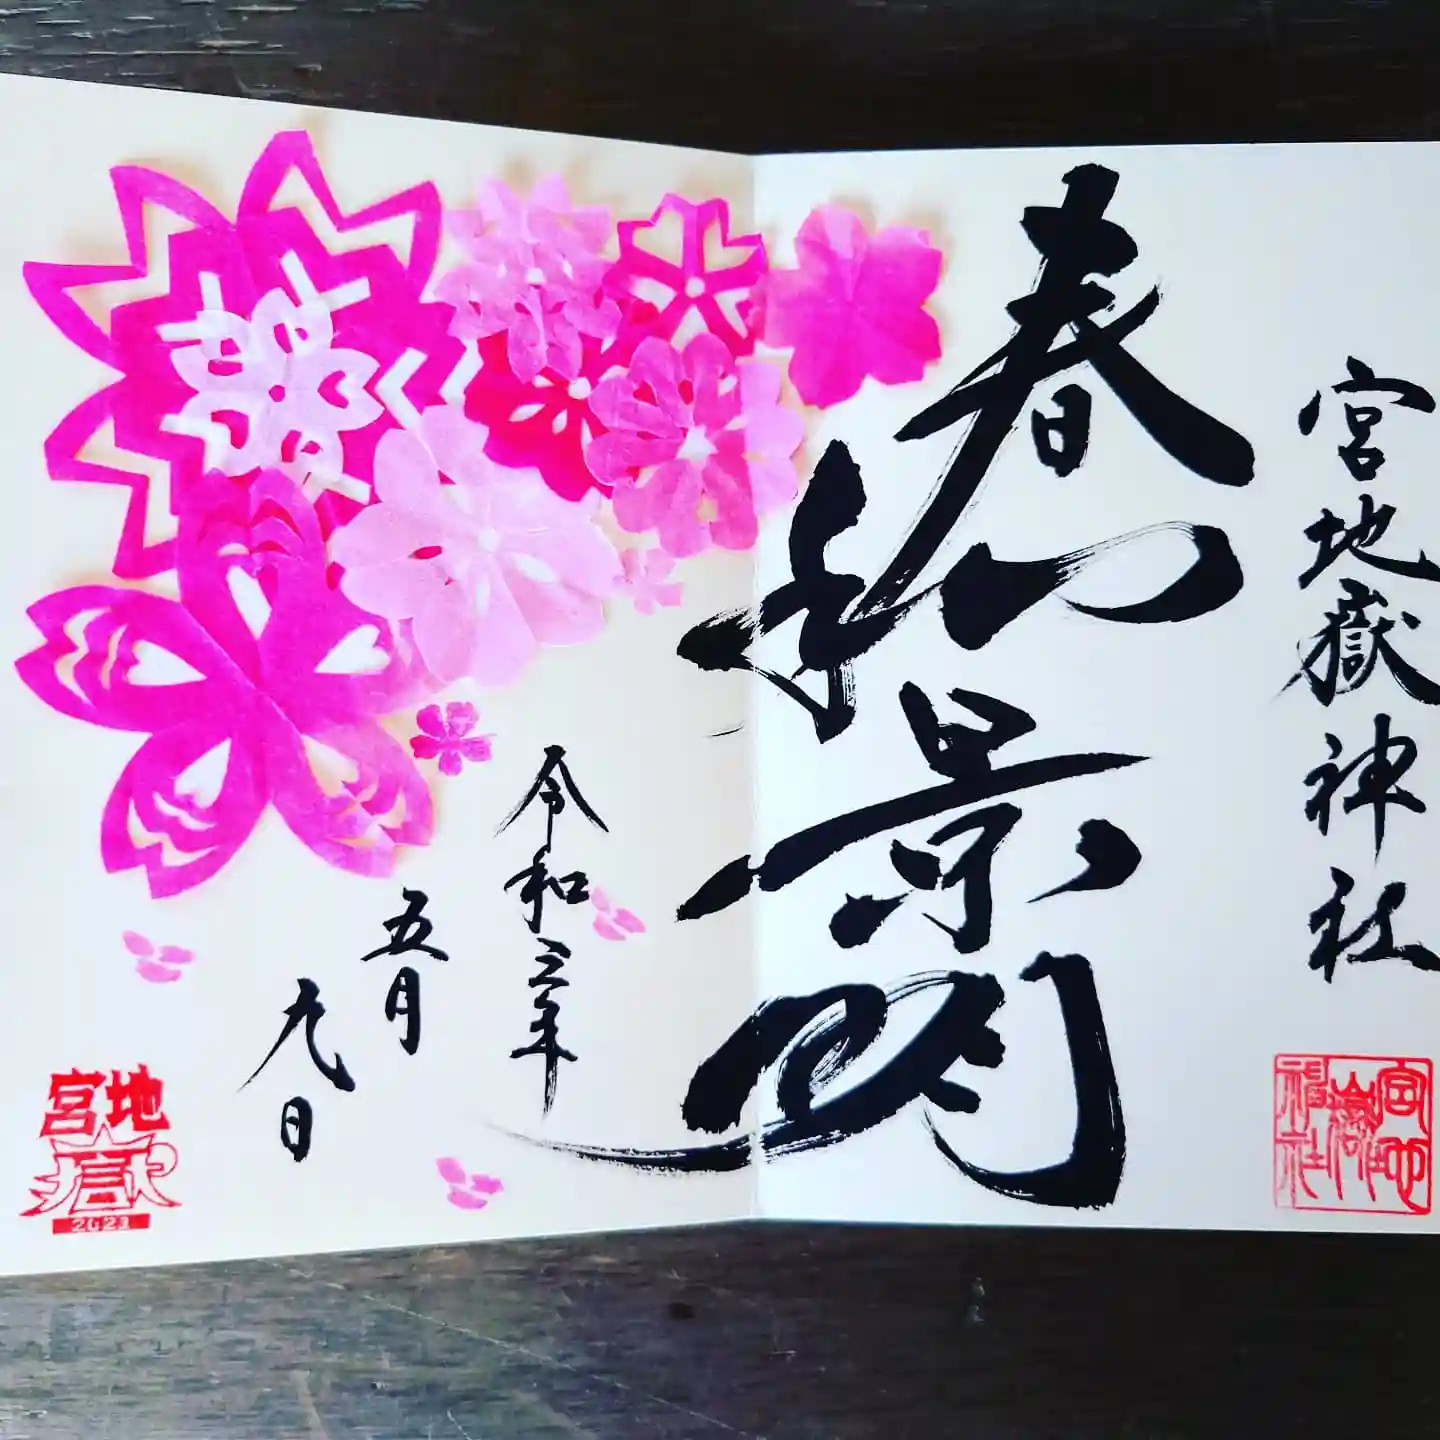 宮地嶽神社
春和景明
令和三年
五月
九日
宮地嶽神社
宮地嶽